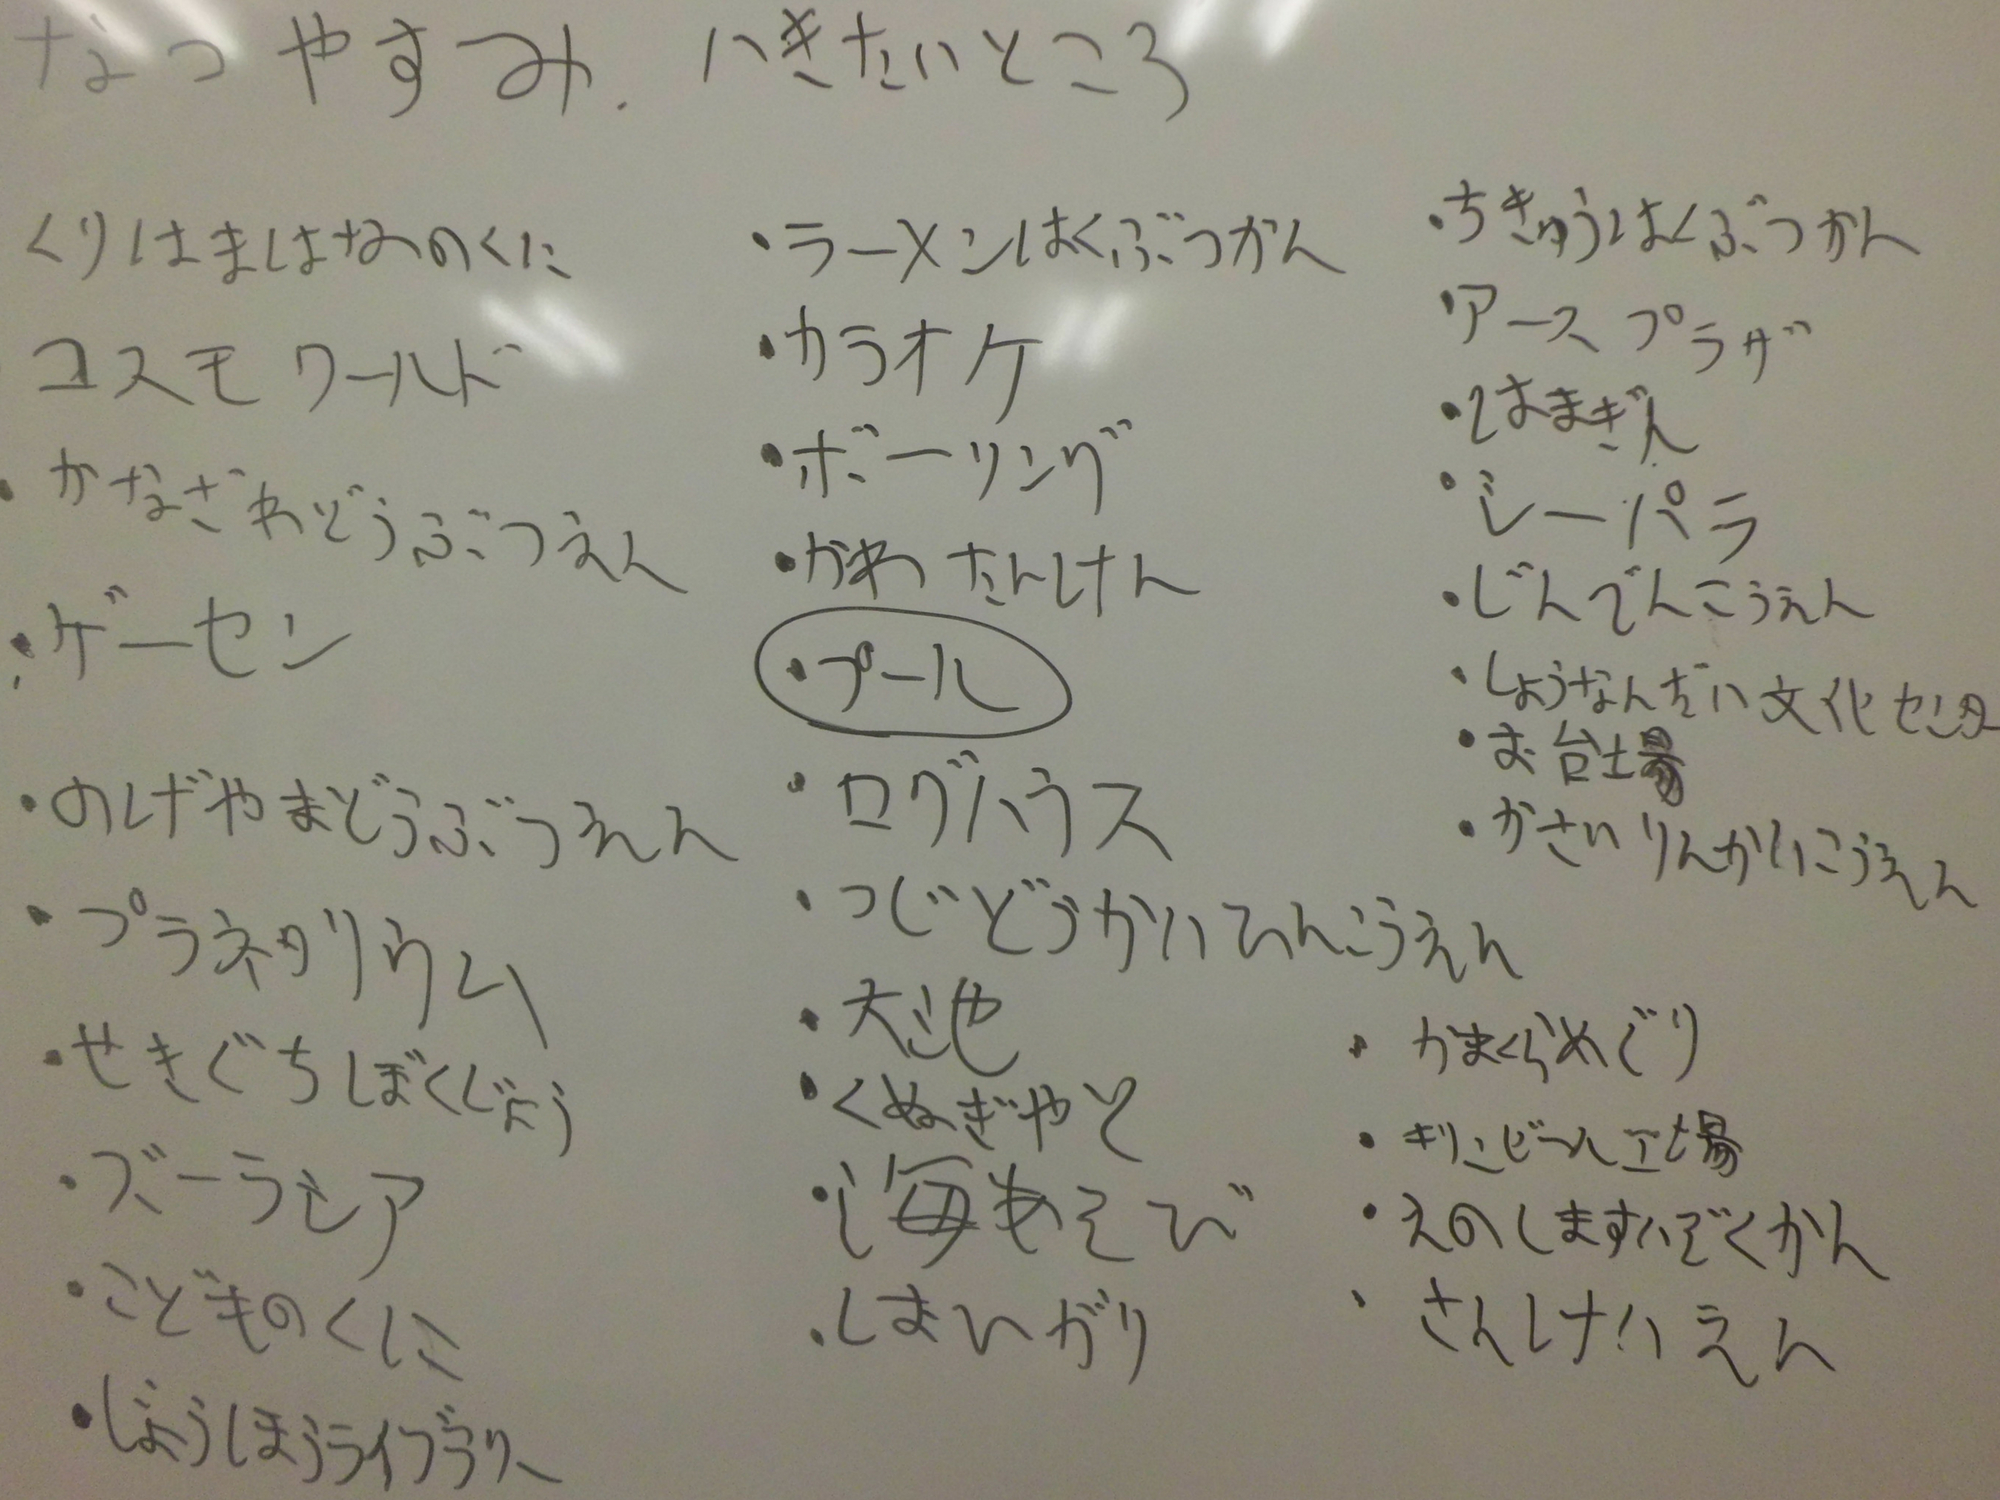 なつやすみ.いきたいところ
くりはまはなのくに
コスモワールド
・かなざわどうぶつえん
・ゲーセン
・のげやまどうぶつえん
・プラネタリウム
・せきぐちぼくじょう
・ズーラシア
・こどものくに
・じょうほうライブラリー
・ラーメンはくぶつかん
・カラオケ
・ボーリング
・かわたんけん
・プール
・ログハウス
・つじどうかいひんこうえん
・大池
・くぬぎやと
・海あそび
・しまいがり
・ちきゅうはくぶつかん
・アースプラザ
・はまぎん
・シーパラ
・じんでんこうえん
・しょうなんだい文化センター
・お台場
・かさいりんかいこうえん
・かまくらめぐり
・キリンビール工場
・えのしますいぞくかん
・さんけいえん